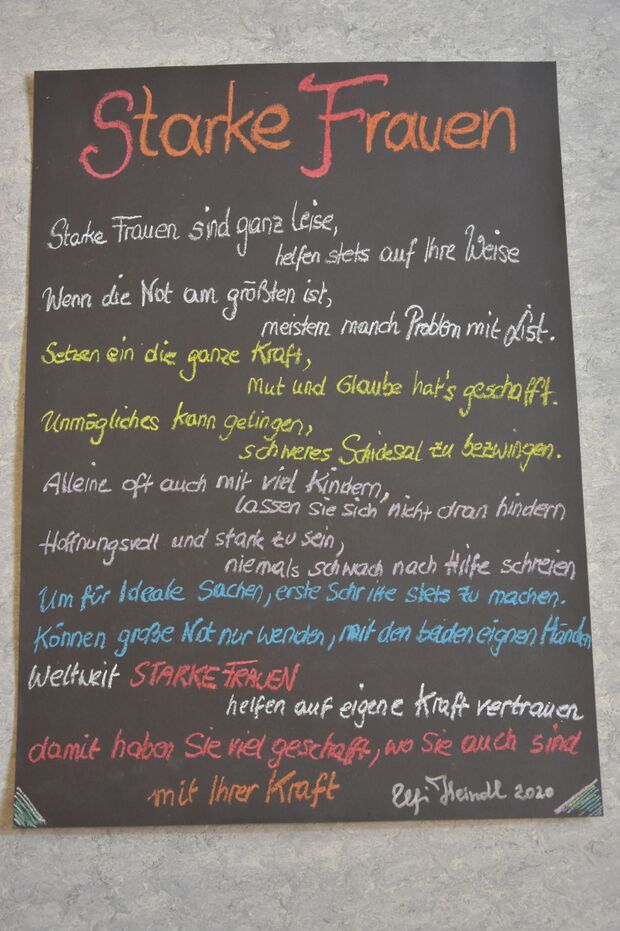 Starke Frauen
Starke Frauen sind ganz leise,
helfen stets auf Ihre Weise
Wenn die Not am größten ist,
meistern manch Problem mit List.
Setzen ein die ganze Kraft,
Mut und Glaube hat's geschafft.
Unmögliches kann gelingen,
schweres Schicksal zu bezwingen.
Alleine oft auch mit viel Kindern,
lassen sie sich nicht dran hindern
Hoffnungsvoll und stark zu sein,
niemals schwach nach Hilfe schreien
Um für Ideale Sachen, erste Schritte stets zu machen.
Können große Not nur wenden, mit den beiden eignen Händen
Weltweit STARKE FRAUEN
helfen auf eigene Kraft vertrauen
damit haben Sie viel geschafft, wo Sie auch sind
mit Ihrer Kraft
Elfi Heindl 2020